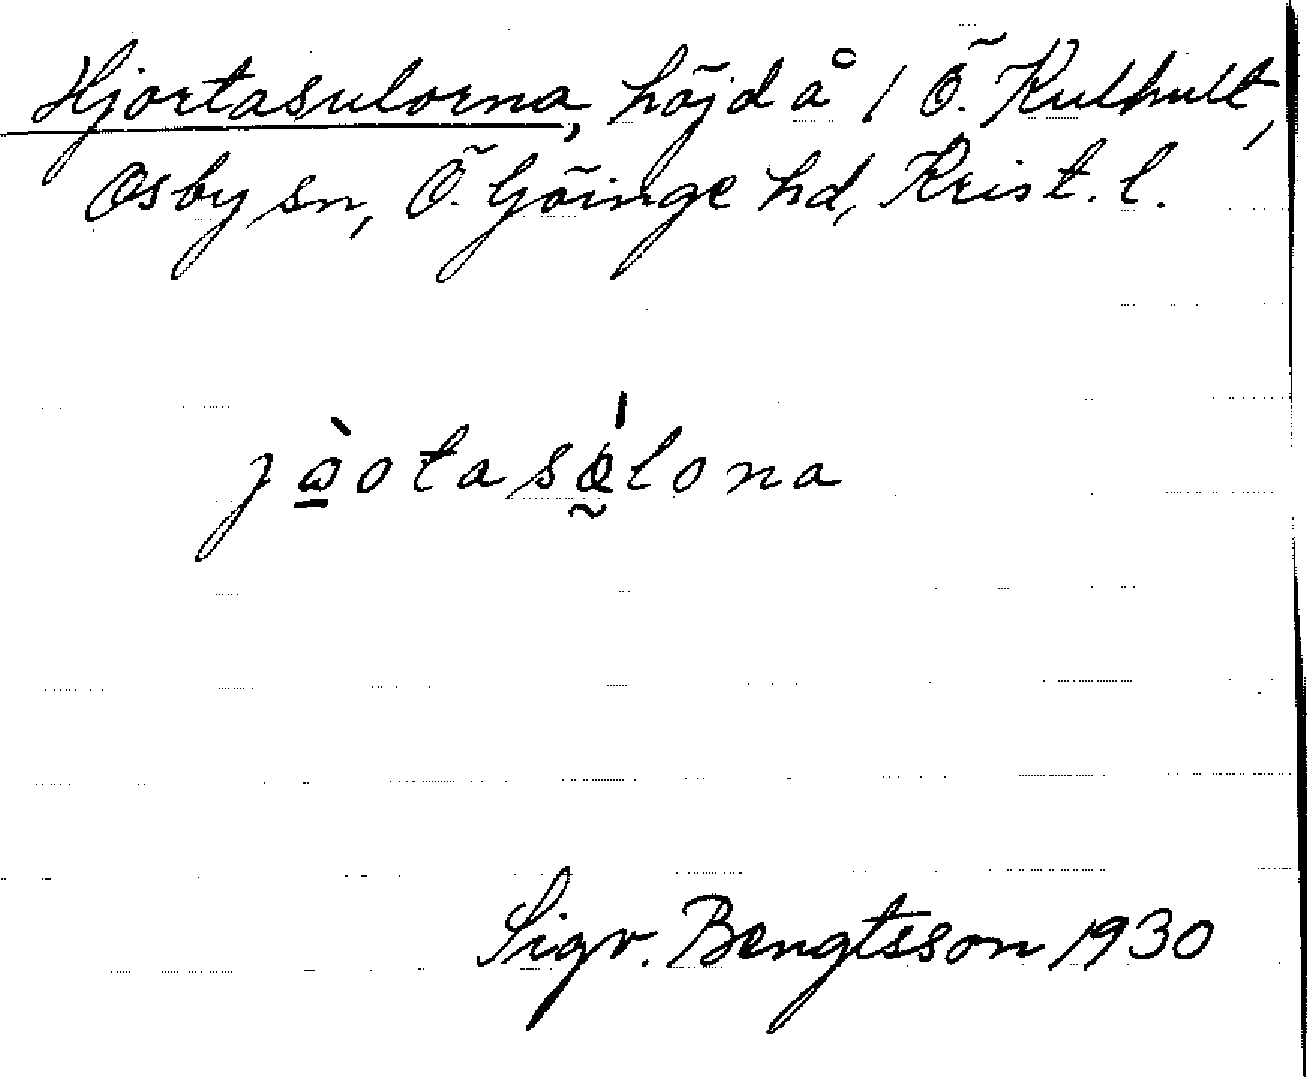 Hjortasulorna, höjd å / Ö. Kulhult,
Osby sn, Ö. Göinge hd, Krist. l.
Sigv. Bengtsson 1930